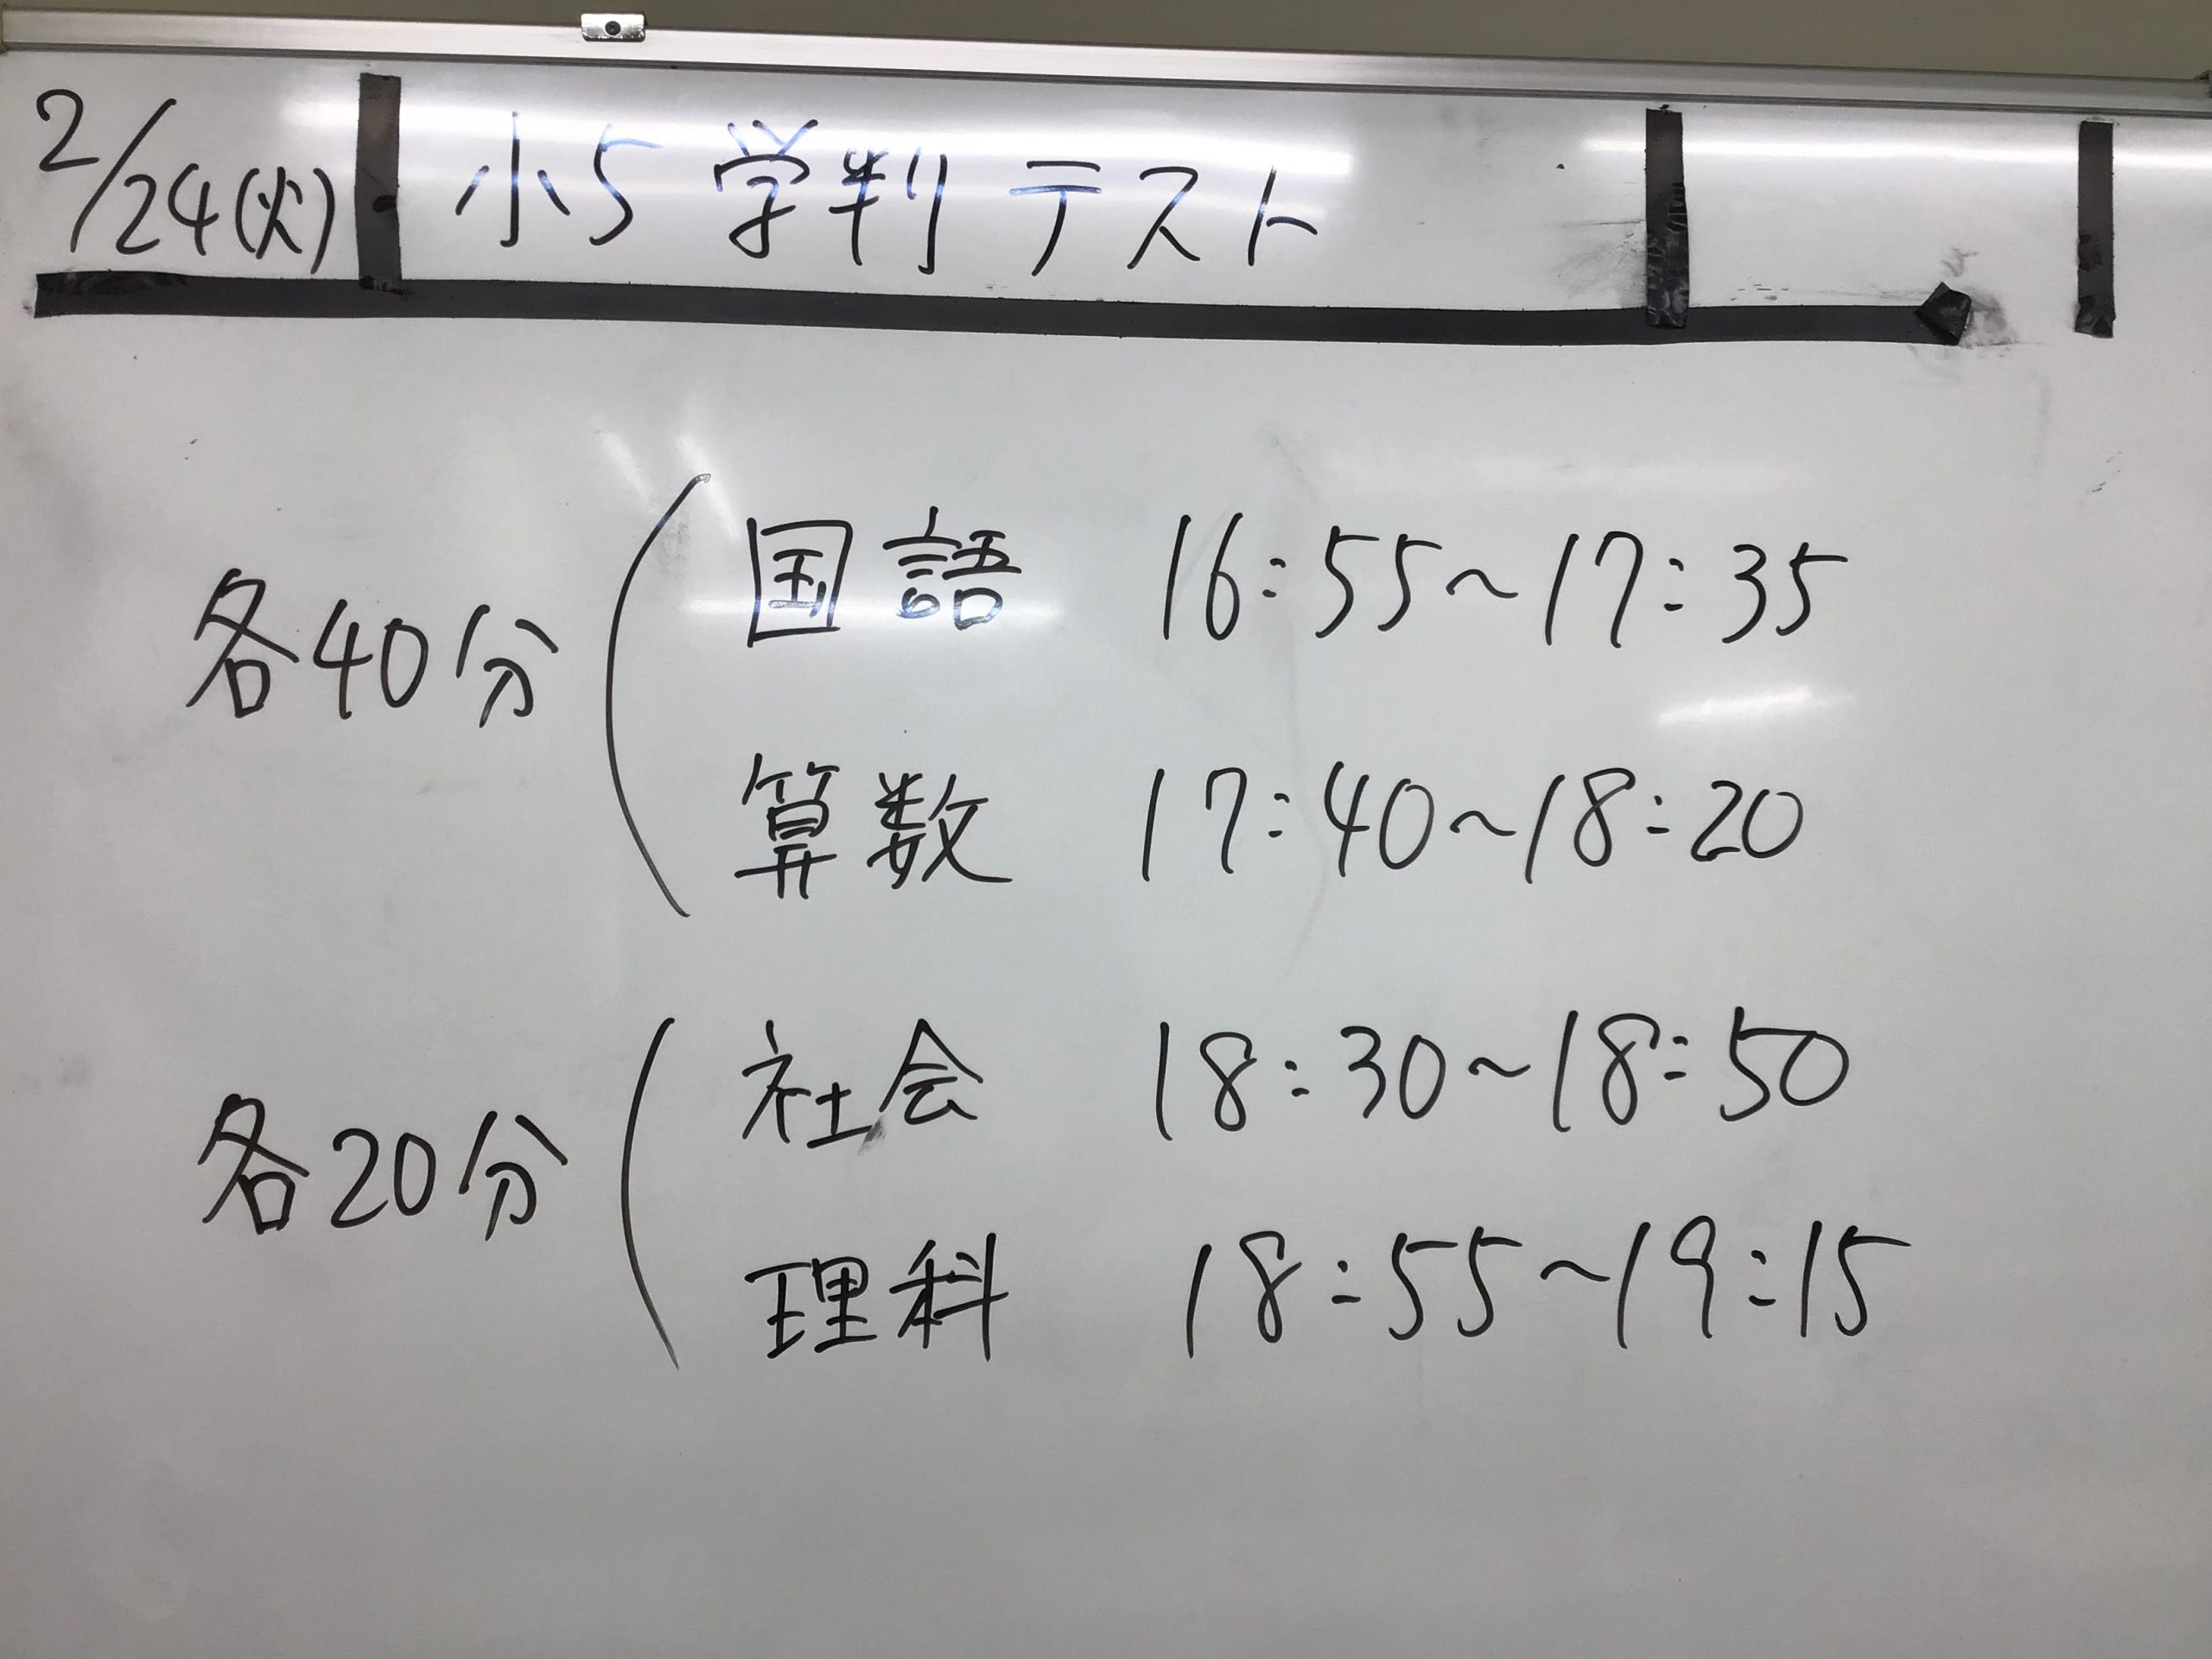 2/24(火) 小5 学判テスト
各40分
国語 16:55~17:35
算数 17:40~18:20
各20分
社会 18:30~18:50
理科 18:55~19:15